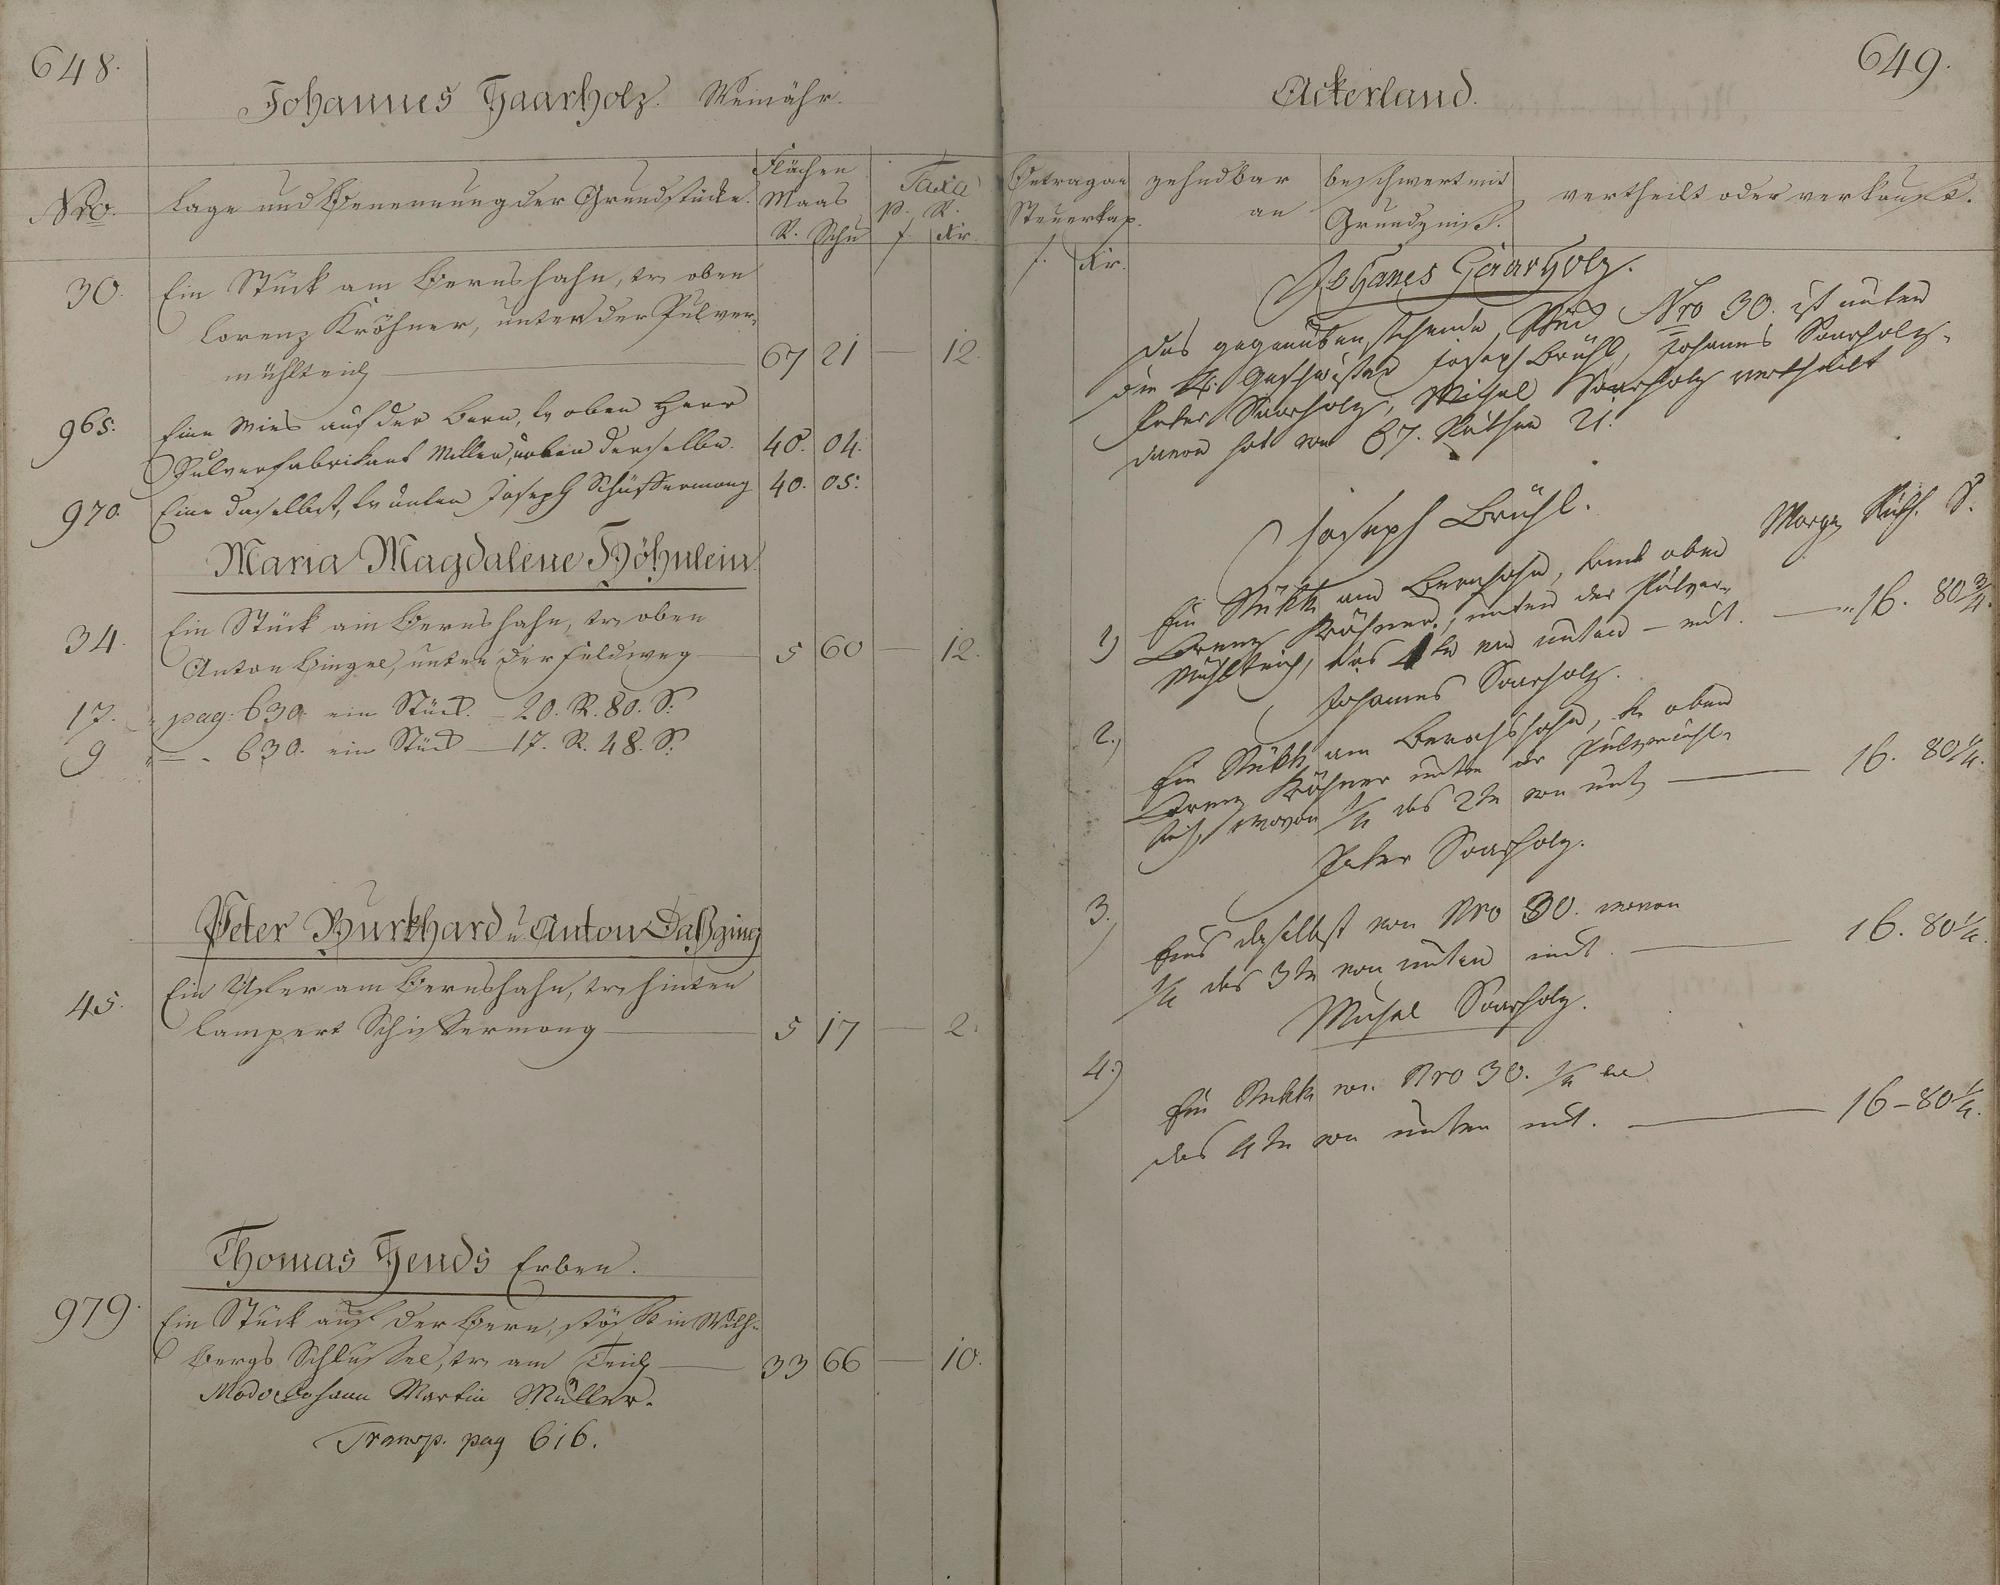 648.
Johannes Haarholz. Weinähr.
Nro.
Lage und Benennung der Grundstücke.
Flächen
Maas
R. Schu
Taxa
p. R.
f. Kr.
30. Ein Stück am Bernshahn, tr. oben
Lorenz Kröhner, unten der Pulver-
mühlteich — 67 21 — 12.
965. Eine Wies auf der Bern, tr oben Herr
Pulverfabrikant Müller, neben derselbe. 40. 04.
970. Eine daselbst, tr unten Joseph Schüssermong 40. 05.
Maria Magdalene Höhnlein
34. Ein Stück am Bernshahn, tr. oben
Anton Bingel, unten der Feldweg — 5 60 — 12.
17. " pag: 630. ein Stück. — 20. R. 80. S.
9 " — . 630. ein Stück — 17. R. 48. S.
Peter Burkhard u. Anton Daßging
45. Ein Acker am Bernshahn, tr. hinten
Lampert Schissermong — 5 17 — 2.
Thomas Hends Erben.
979. Ein Stück auf der Bern, stößt in
Bergs Schlüssel, tr. am Teich — 33 66 — 10.
Modo Johann Martin Müller.
Transp. pag 616.
649.
Ackerland.
Betrag an
Steuerkap.
f. Kr.
zehndbar
an
beschwert mit
Grundzins.
vertheilt oder verkauft.
Johanes Haarholz.
Das gegenüber stehende Stück Nro 30. ist unter
die 4. Geschwister Joseph Brühl, Johannes Haarholz,
Peter Haarholz, Michel Haarholz vertheilt
davon hat von 67. Ruthen 21.
Joseph Brühl.
Morgen Ruth. S.
1) Ein Stükk am Bernshahn, oben
Lorenz Kröhner, unten der Pulver-
Mühlteich, das 1te von unten — mit. — " 16. 80 3/4.
Johannes Haarholz.
2.) Ein Stükk am Bernshahn, tr. oben
Lorenz Kröhner unten der Pulvermühl-
teich, wovon 1/4 das 2te von unten — 16. 80 1/4.
Peter Haarholz.
3.) Eins daselbst von Nro 30. wovon
1/4 das 3te von unten mit. — 16. 80 1/4.
Michel Haarholz.
4.) Ein Stükk von Nro 30. 1/4
das 4te von unten mit. — 16 – 80 1/4.